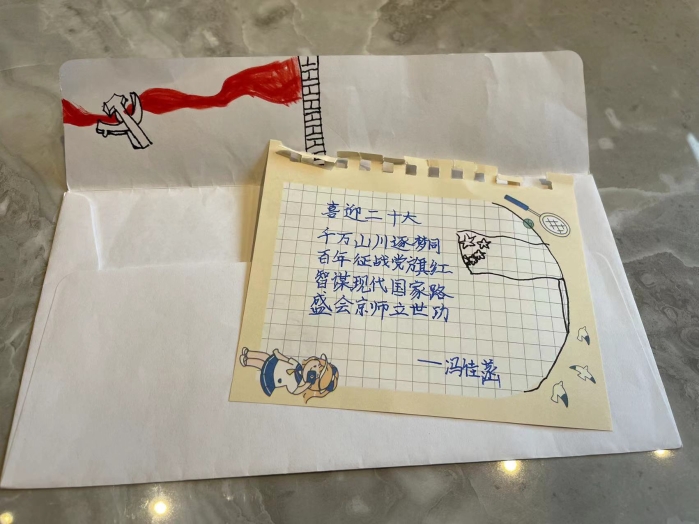 喜迎二十大
千万山川逐梦同
百年征战党旗红
智谋现代国家路
盛会京师立世功
——冯佳菡